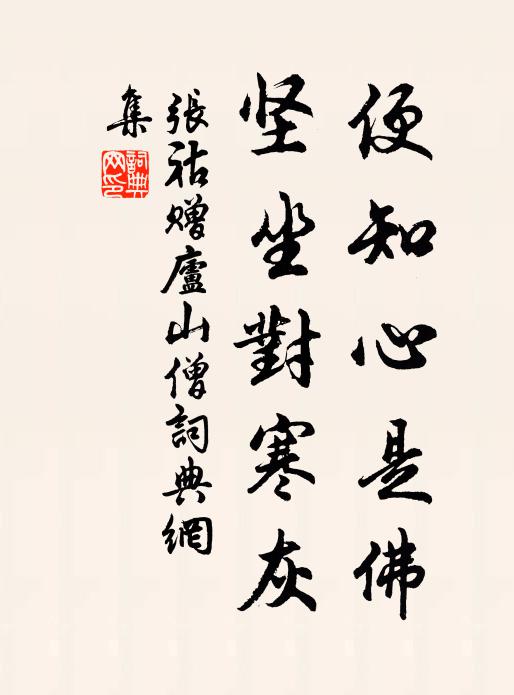 便知心是佛
坚坐對寒灰
張祜贈廬山僧詞典網
集
詞典
网印